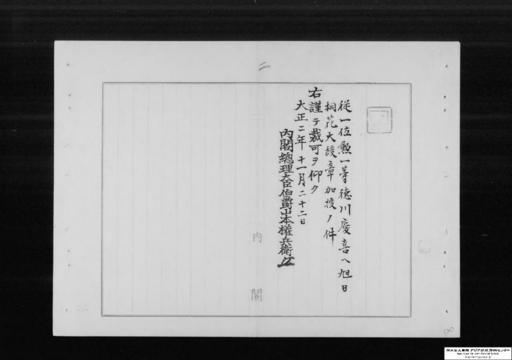 二
従一位勲一等徳川慶喜ヘ旭日
桐花大綬章加授ノ件
右謹テ裁可ヲ仰ク
大正二年十一月二十二日
内閣總理大臣伯爵山本權兵衛
内閣